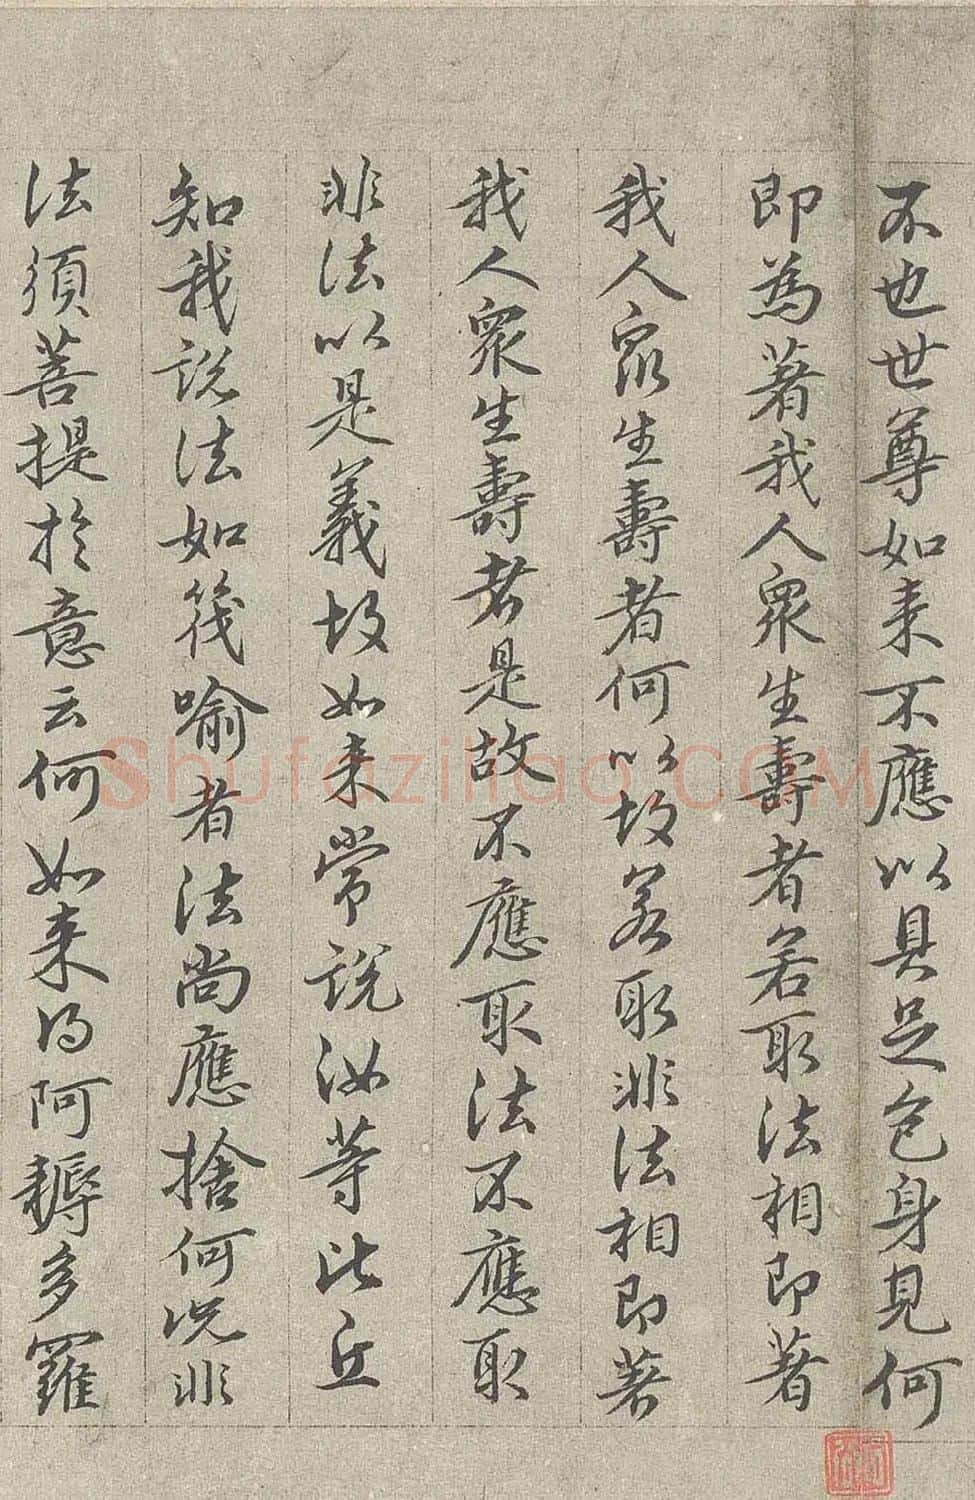 不也世尊如来不應以具足色身見何
即為著我人衆生壽者若取法相即著
我人衆生壽者何以故若取非法相即著
我人衆生壽者是故不應取法不應取
非法以是義故如来常說汝等比丘
知我說法如筏喻者法尚應捨何况非
法須菩提於意云何如来得阿耨多羅
Shufaziliao.COM